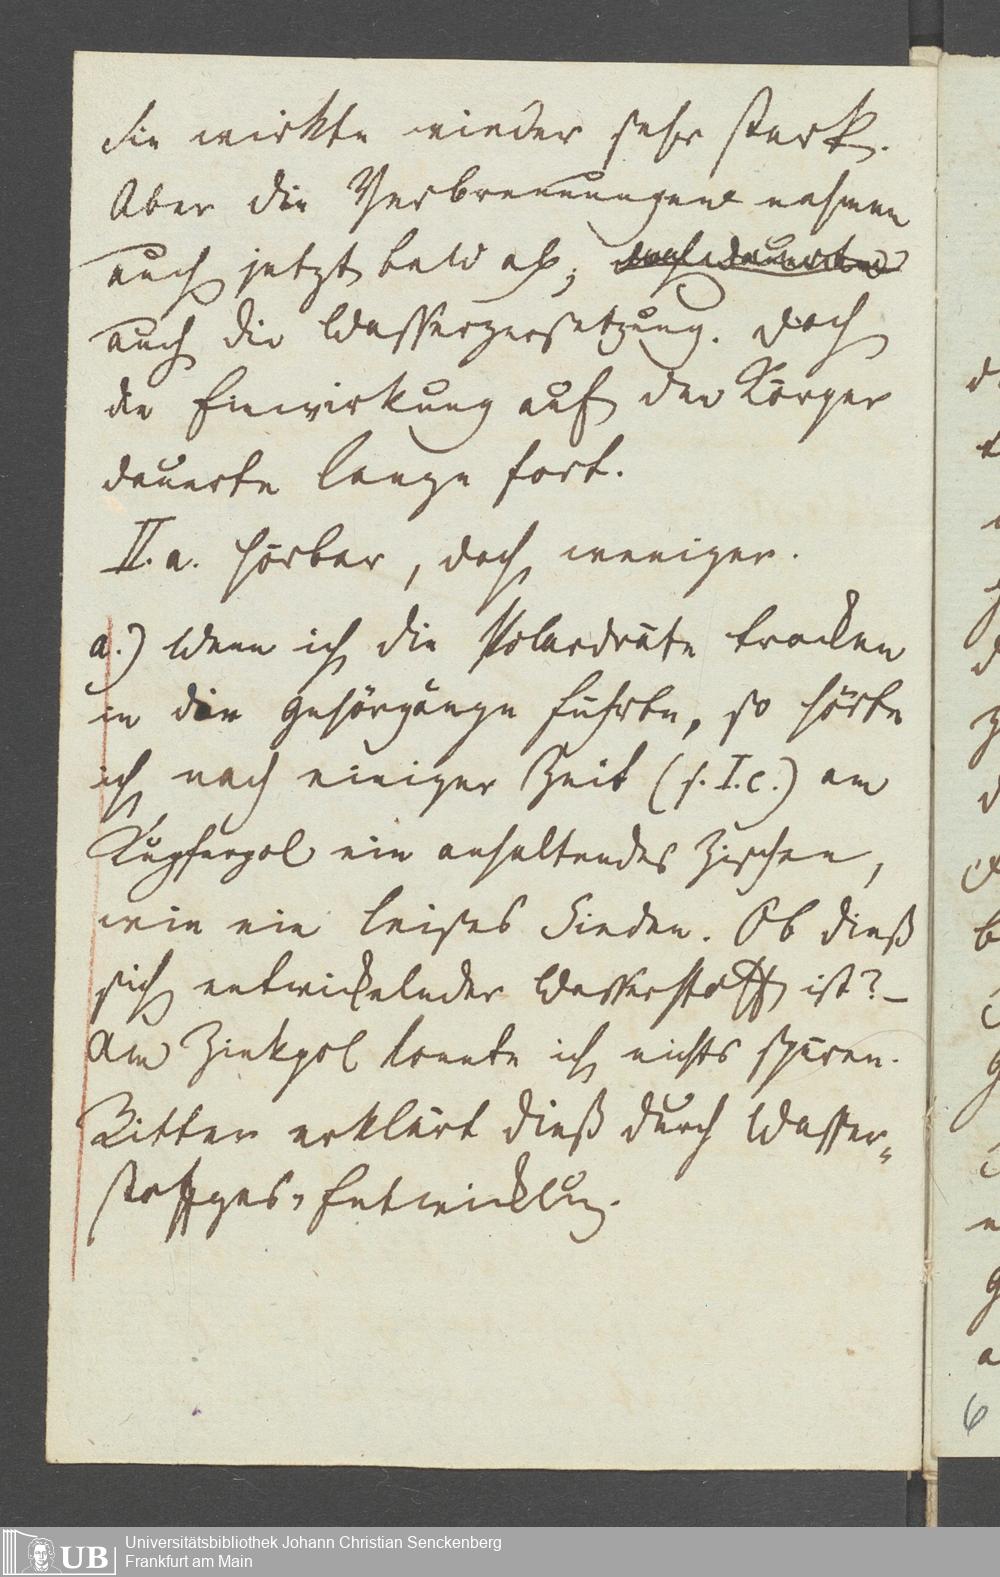 Sie wirkte wieder sehr stark.
Aber die Verbrennungen nahmen
auch jetzt bald ab,
auch die Wasserzersetzung. Doch
die Einwirkung auf den Körper
dauerte lange fort.
II.a. hörbar, doch weniger.
a.) Wenn ich die Polardräte trocken
in die Gehörgänge führte, so hörte
ich nach einiger Zeit (s. I.c.) am
Kupferpol ein anhaltendes Zischen,
wie ein leises Sieden. Ob dieß
sich entwickelnder Wasserstoff ist? –
Am Zinkpol konnte ich nichts spüren.
Ritter erklärt dieß durch Wasser=
stoffgas=Entwicklung.
6
UB Universitätsbibliothek Johann Christian Senckenberg
Frankfurt am Main